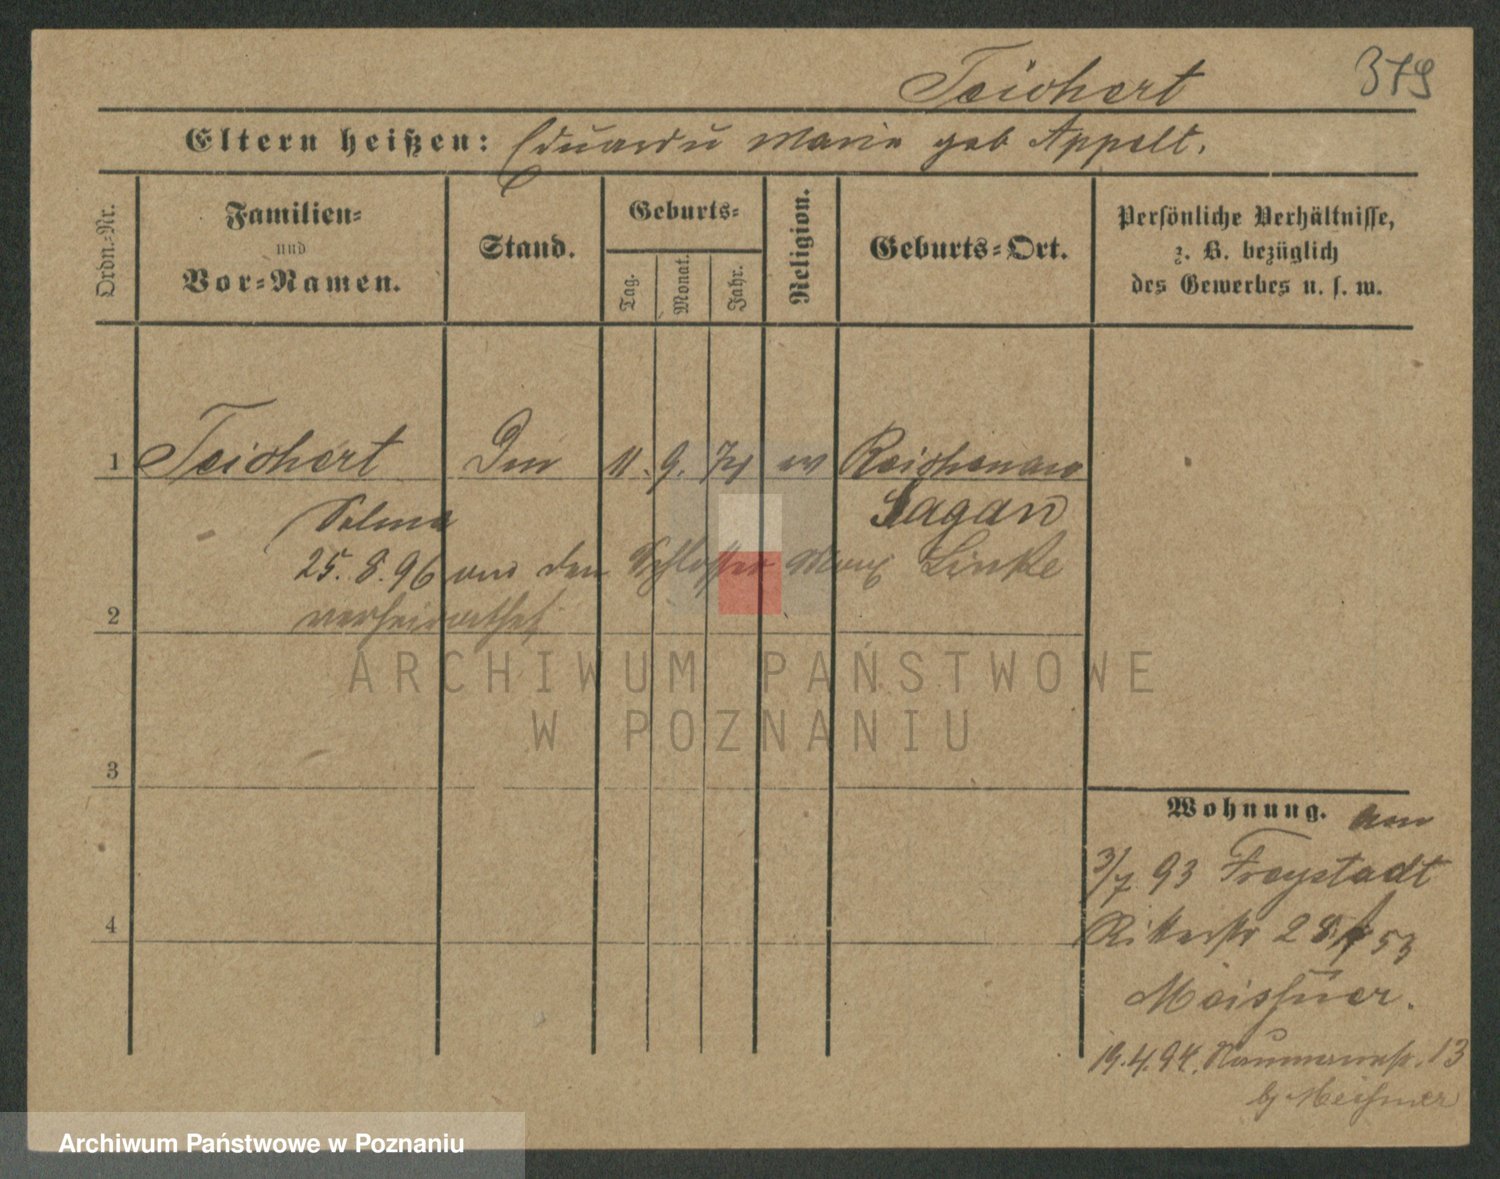 Teichert 379
Eltern heißen: Eduard u Marie geb Appelt.
Ordn.-Nr.
Familien-
und
Vor-Namen.
Stand.
Geburts-
Tag.
Monat.
Jahr.
Religion.
Geburts-Ort.
Persönliche Verhältnisse,
z. B. bezüglich
des Gewerbes u. s. w.
1 Teichert 11. 9. 74 ev Reichenau
Selma Sagan
25. 8. 96 an den Schlosser Max Linke
2 verheirathet
ARCHIWUM PAŃSTWOWE
W POZNANIU
3
Wohnung. am
3/7. 93 Freystadt
4
Ritterstr 28 53
Meissner.
19. 4. 94. Naumannstr. 13
b/ Meißner
Archiwum Państwowe w Poznaniu